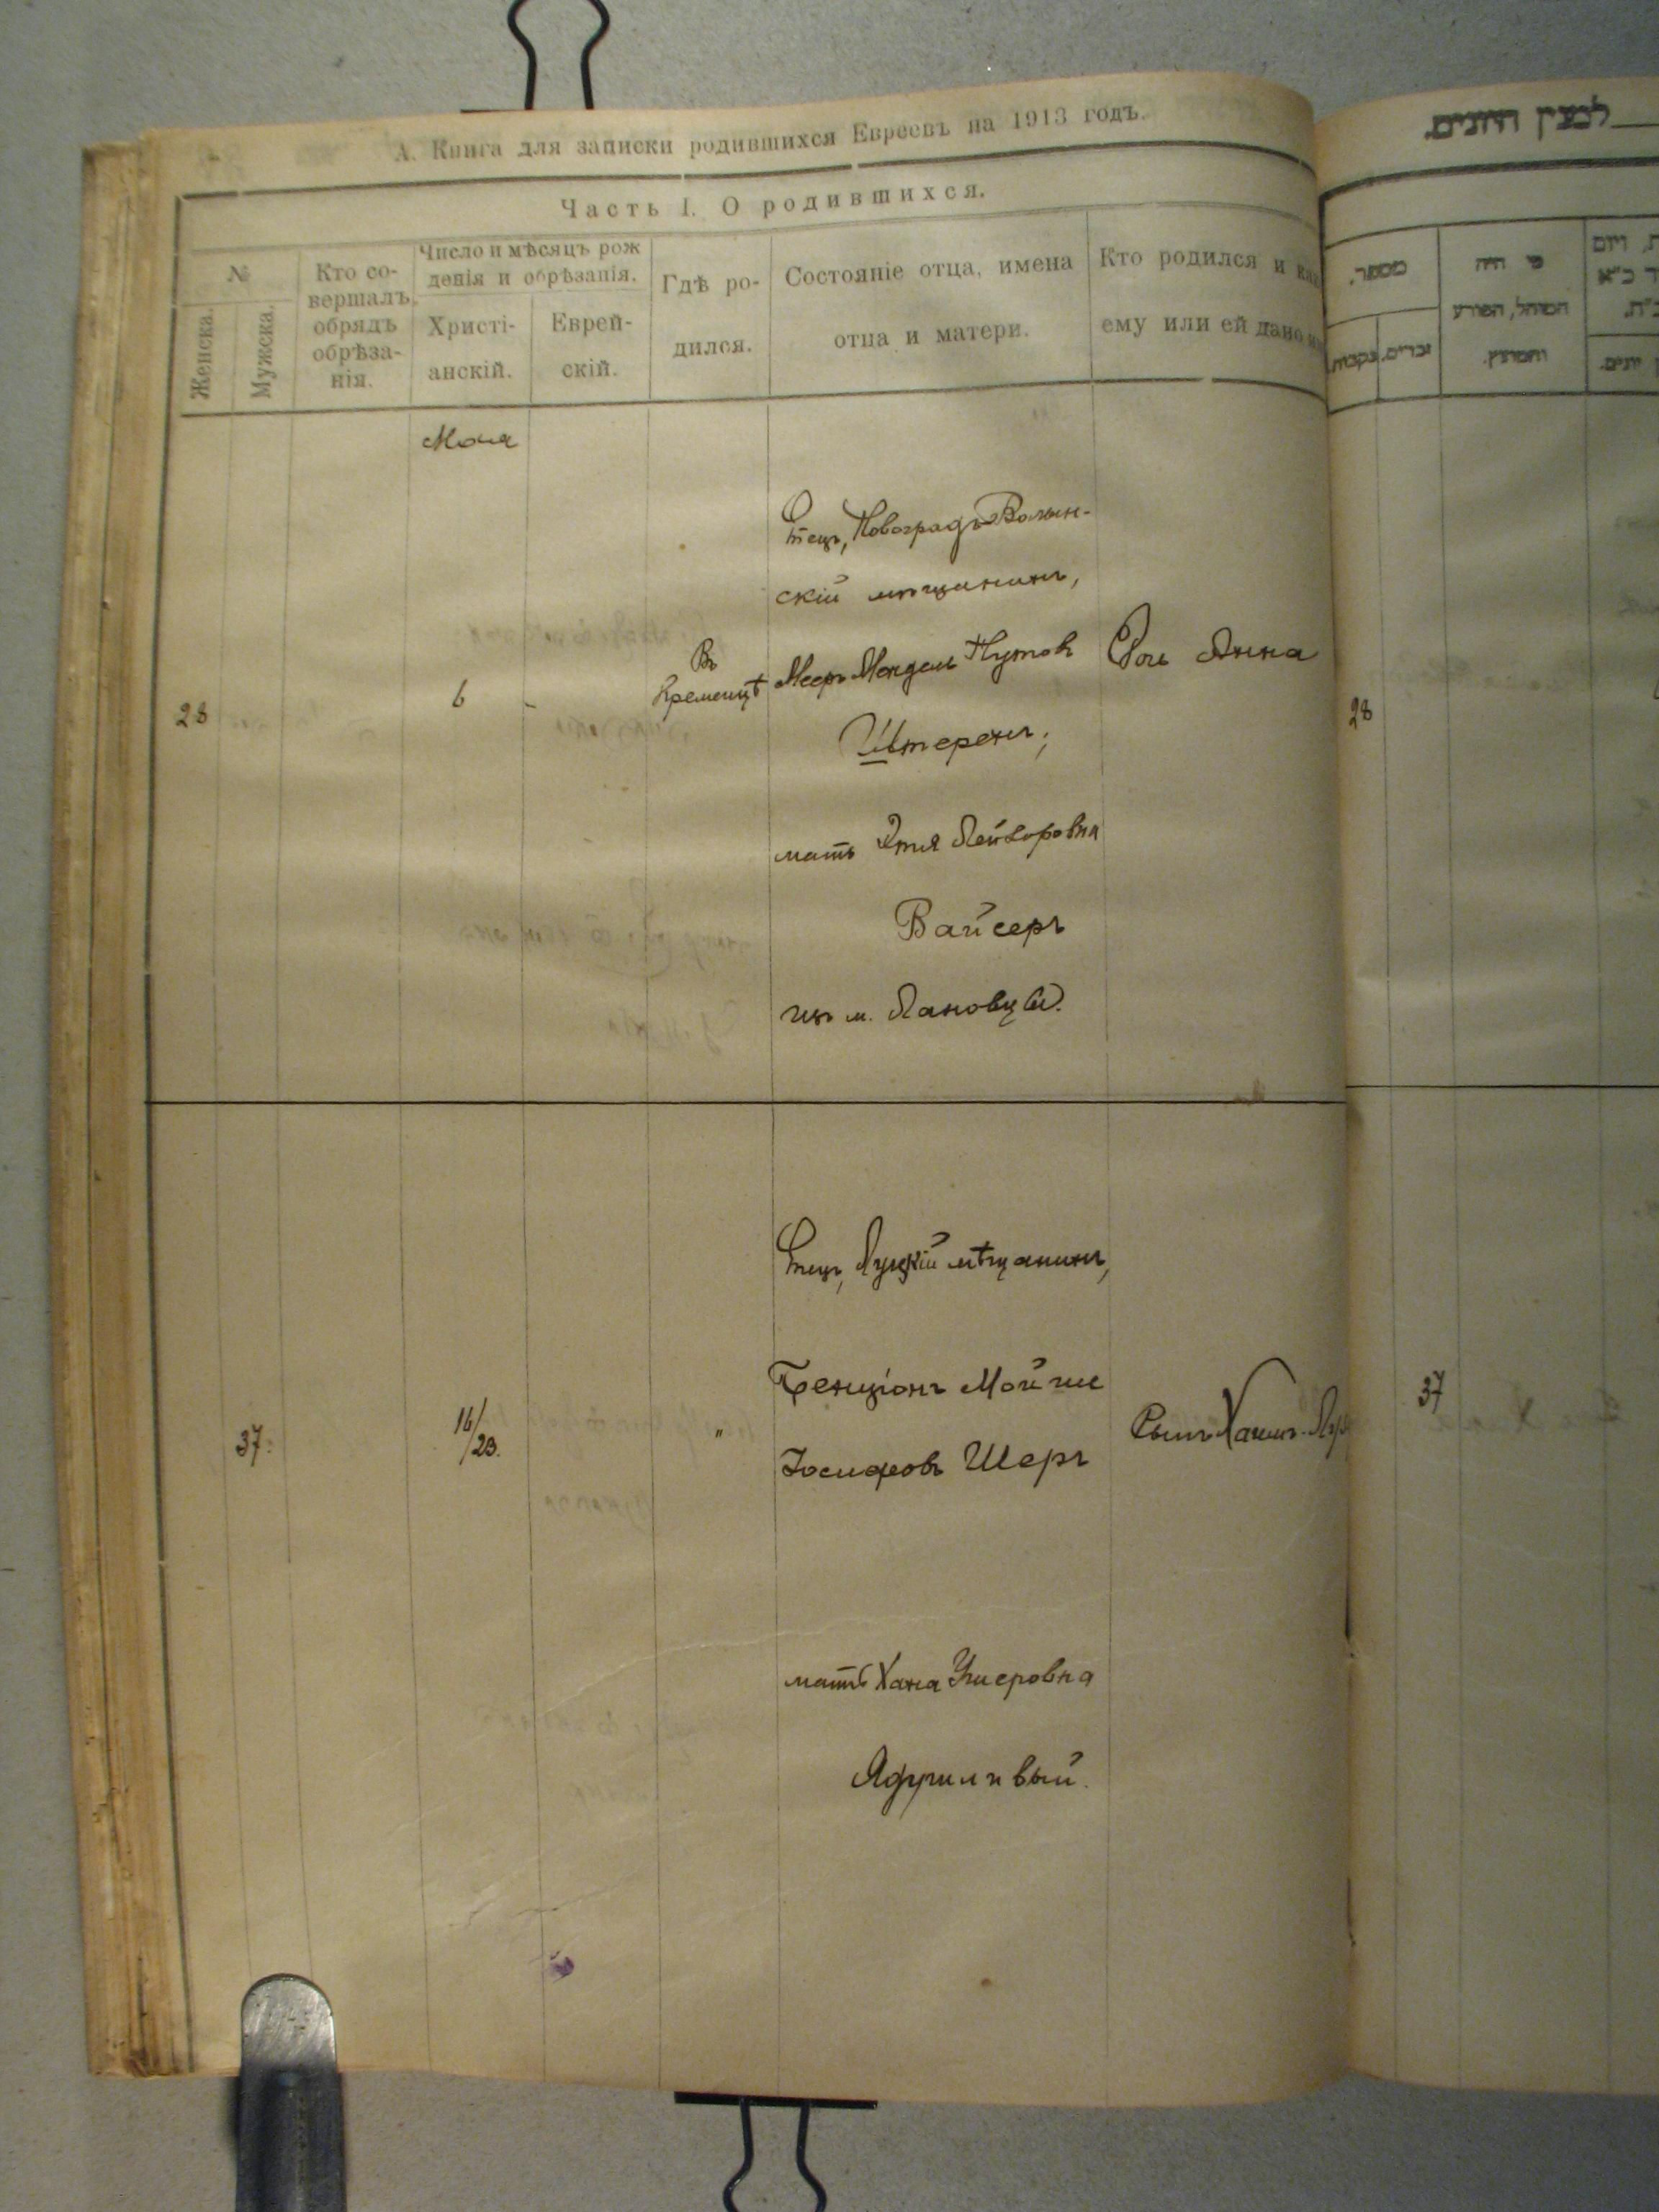 А. Книга для записки родившихся Евреевъ на 1913 годъ.
Часть I. О родившихся.
№
Женска.
Мужска.
Кто со-
вершалъ
обрядъ
обрѣза-
нія.
Число и мѣсяцъ рож
денія и обрѣзанія.
Христі-
анскій.
Еврей-
скій.
Гдѣ ро-
дился.
Состояніе отца, имена
отца и матери.
Кто родился и как
ему или ей дано
Мая
28
6
-
Въ
Кременцѣ
Отецъ, Новоградъ Волын-
скій мѣщанинъ,
Мееръ Мендель Нутовъ
Штеренъ;
мать Этля Лейзоровна
Вайсеръ
изъ м. Лановцы.
Дочь Анна
37.
16/23.
"
Отецъ, Луцкій мѣщанинъ,
Бенціонъ Мойше
Іосифовъ Шеръ
мать Хана Ушеровна
Сынъ Хаимъ
מספר.
זכרים.
נקבות
מי היה
המוהל, הפורע
והמוצץ.
28
37